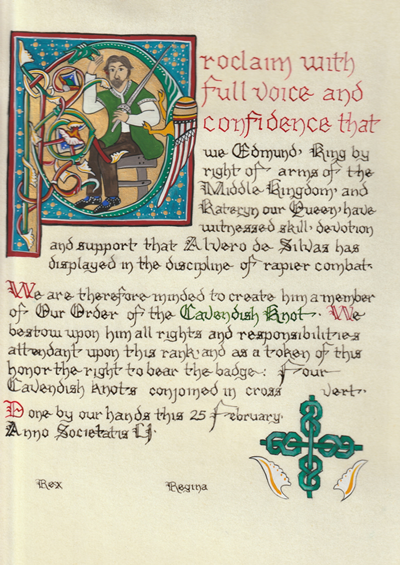 Proclaim with
full voice and
confidence that
we Edmund, King by
right of arms of the
Middle Kingdom, and
Kateryn our Queen, have
witnessed skill, devotion
and support that Alvero de Silvas has
displayed in the discipline of rapier combat.
We are therefore minded to create him a member
of Our Order of the Cavendish Knot. We
bestow upon him all rights and responsibilities
attendant upon this rank, and as a token of this
honor the right to bear the badge: Four
Cavendish knots conjoined in cross vert.
Done by our hands this 25 February.
Anno Societatis LJ.
Rex Regina